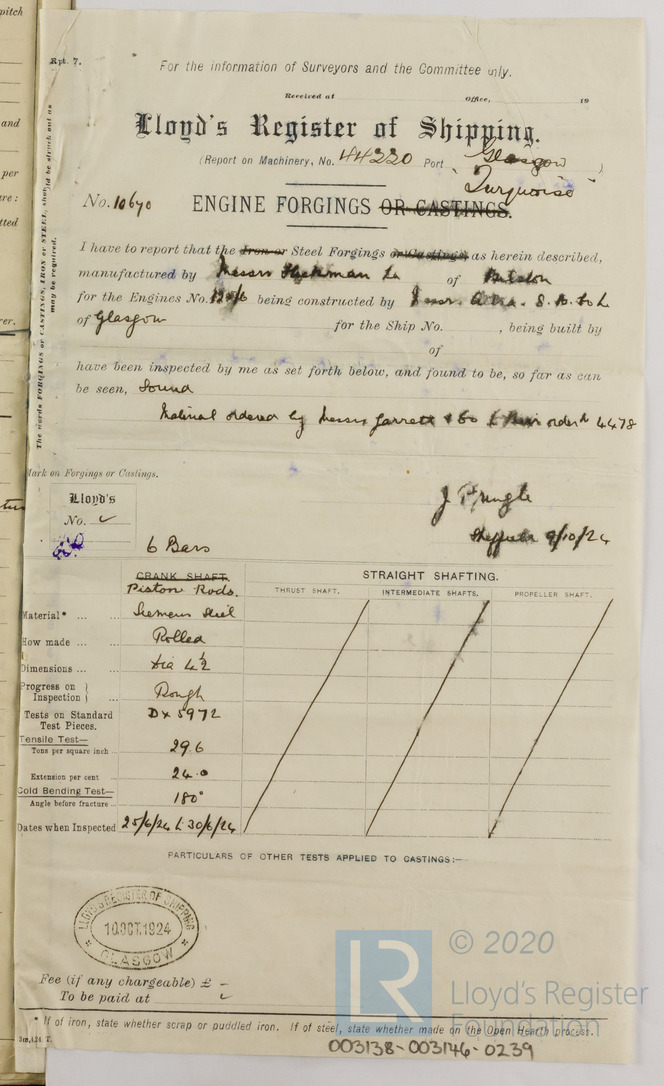 pitch
and
per
tted
rer.
Rpt. 7.
For the information of Surveyors and the Committee only.
Received at Office, 19
Lloyd's Register of Shipping.
(Report on Machinery, No. 44220 Port Glasgow)
"Turquoise"
No. 10670 ENGINE FORGINGS OR CASTINGS.
The words FORGINGS or CASTINGS, IRON or STEEL, should be struck out as may be required.
I have to report that the Iron or Steel Forgings or Castings as herein described,
manufactured by Messrs Hickman Ld of Bilston
for the Engines No. being constructed by Messrs
of Glasgow for the Ship No. , being built by
of
have been inspected by me as set forth below, and found to be, so far as can
be seen, Sound
Material ordered by Messrs Garrett & Co order No 4478
Mark on Forgings or Castings.
Lloyd's
No. 
J Pringle
Sheffield 9/10/24
6 Bars
CRANK SHAFT.
Piston Rods.
STRAIGHT SHAFTING.
THRUST SHAFT. INTERMEDIATE SHAFTS. PROPELLER SHAFT.
Material* ... Siemens Steel
How made ... Rolled
Dimensions ... ... dia 4½
Progress on Inspection } ... Rough
Tests on Standard Test Pieces. DX 5972
Tensile Test—
Tons per square inch ... 29.6
Extension per cent ... 24.0
Cold Bending Test—
Angle before fracture ... 180°
Dates when Inspected 25/6/24 & 30/6/24
PARTICULARS OF OTHER TESTS APPLIED TO CASTINGS:—
LLOYD'S REGISTER OF SHIPPING
10 OCT. 1924
GLASGOW
Fee (if any chargeable) £ -
To be paid at
* If of iron, state whether scrap or puddled iron. If of steel, state whether made on the Open Hearth process.
LR
© 2020
Lloyd's Register
Foundation
003138-003146-0239